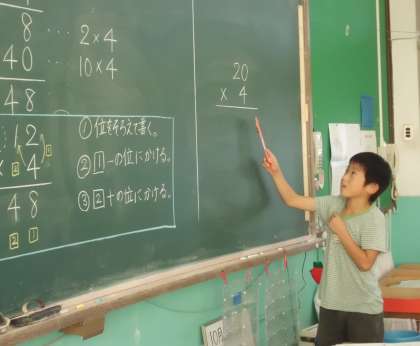 8 ... 2×4
40 ... 10×4
48
12
× 4
48
2 1
①位をそろえて書く。
②1一の位にかける。
③2十の位にかける。
20
× 4
10月